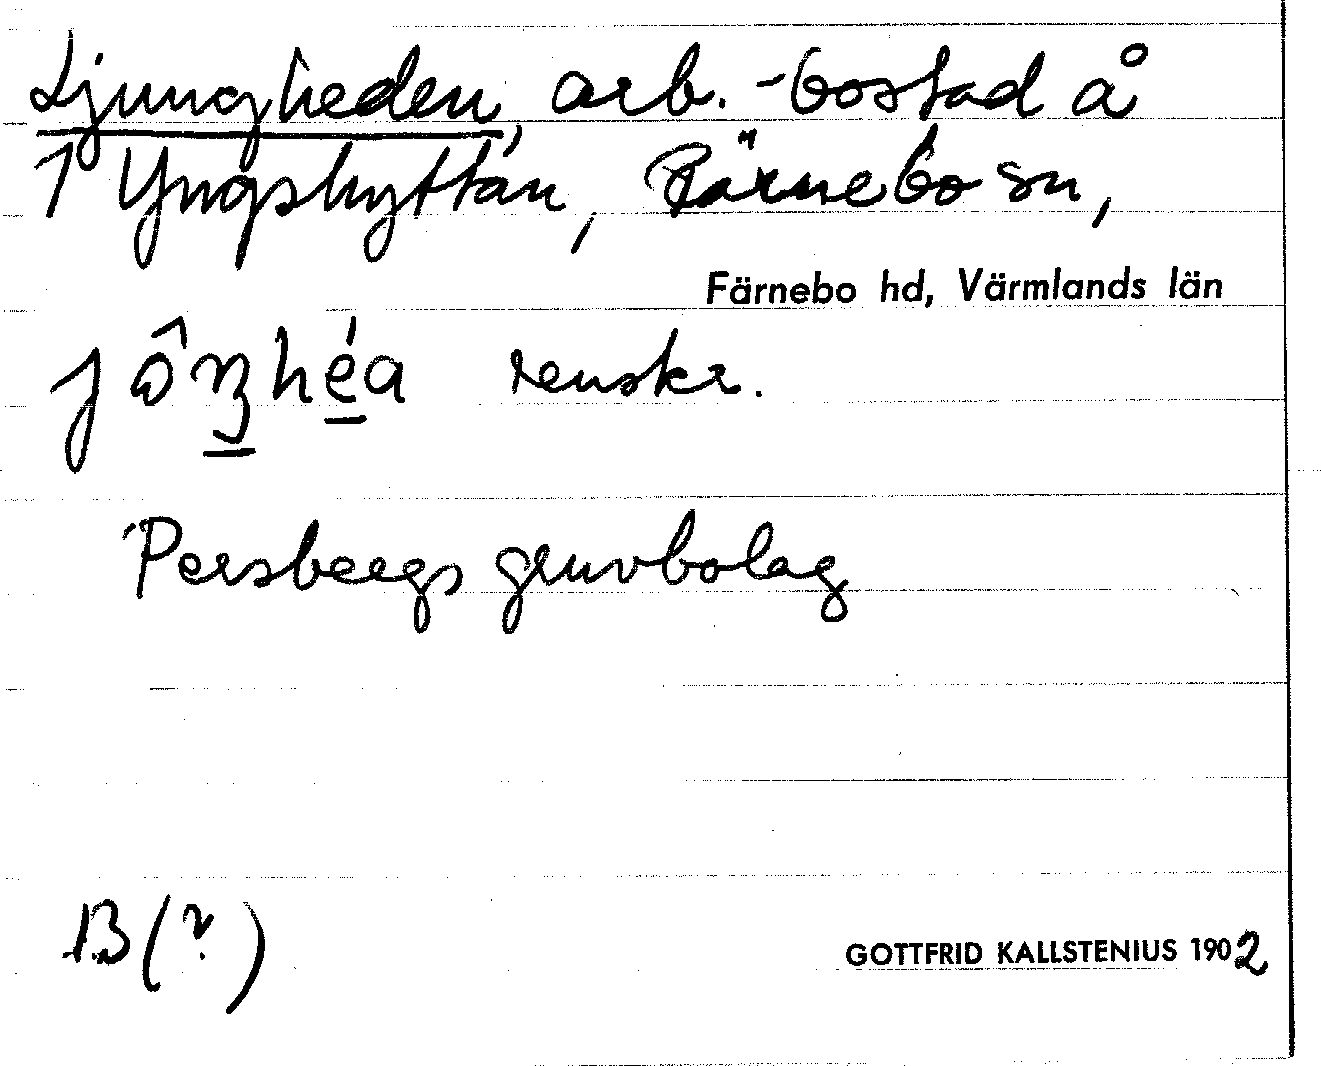 Ljungheden, arb.-bostad å
1 Yngshyttan, Färnebo sn,
Färnebo hd, Värmlands län
renskr.
Persbergs gruvbolag
B (?)
GOTTFRID KALLSTENIUS 1902